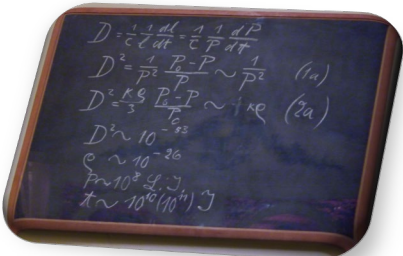 D = 1/c 1/l dl/dt = 1/c 1/P dP/dt
D² = 1/P² P₀-P/P ~ 1/P² (1a)
D² = κρ/3 P₀-P/P₀ ~ κρ (2a)
D² ~ 10⁻⁵³
ρ ~ 10⁻²⁶
P ~ 10⁸ L. J
t ~ 10¹⁰(10¹¹) J